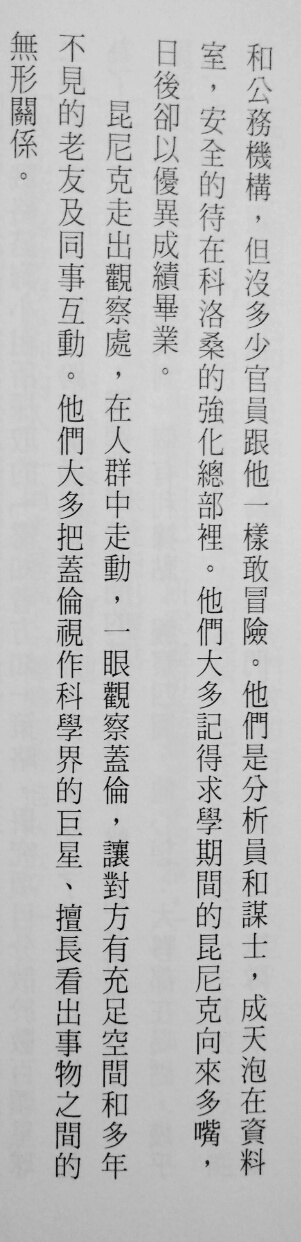 和公務機構，但沒多少官員跟他一樣敢冒險。他們是分析員和謀士，成天泡在資料
室，安全的待在科洛桑的強化總部裡。他們大多記得求學期間的昆尼克向來多嘴，
日後卻以優異成績畢業。
昆尼克走出觀察處，在人群中走動，一眼觀察蓋倫，讓對方有充足空間和多年
不見的老友及同事互動。他們大多把蓋倫視作科學界的巨星、擅長看出事物之間的
無形關係。